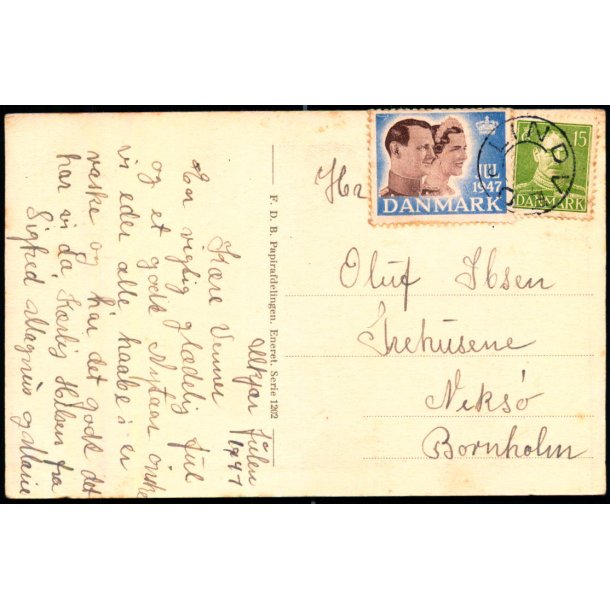 Ulkjær Julen
1947
Kære Venner
En rigtig glædelig Jul
og et godt Nytaar ønske
vi eder alle, haabe i er
raske og har det godt det
har vi da, Kærlig Hilsen fra
Sigfred Magnus og Marie
F. D. B. Papirafdelingen. Eneret. Serie 1202
JUL
1947
DANMARK
15
DANMARK
LINDVED
Hr
Oluf Ibsen
Træhusene
Neksø
Bornholm